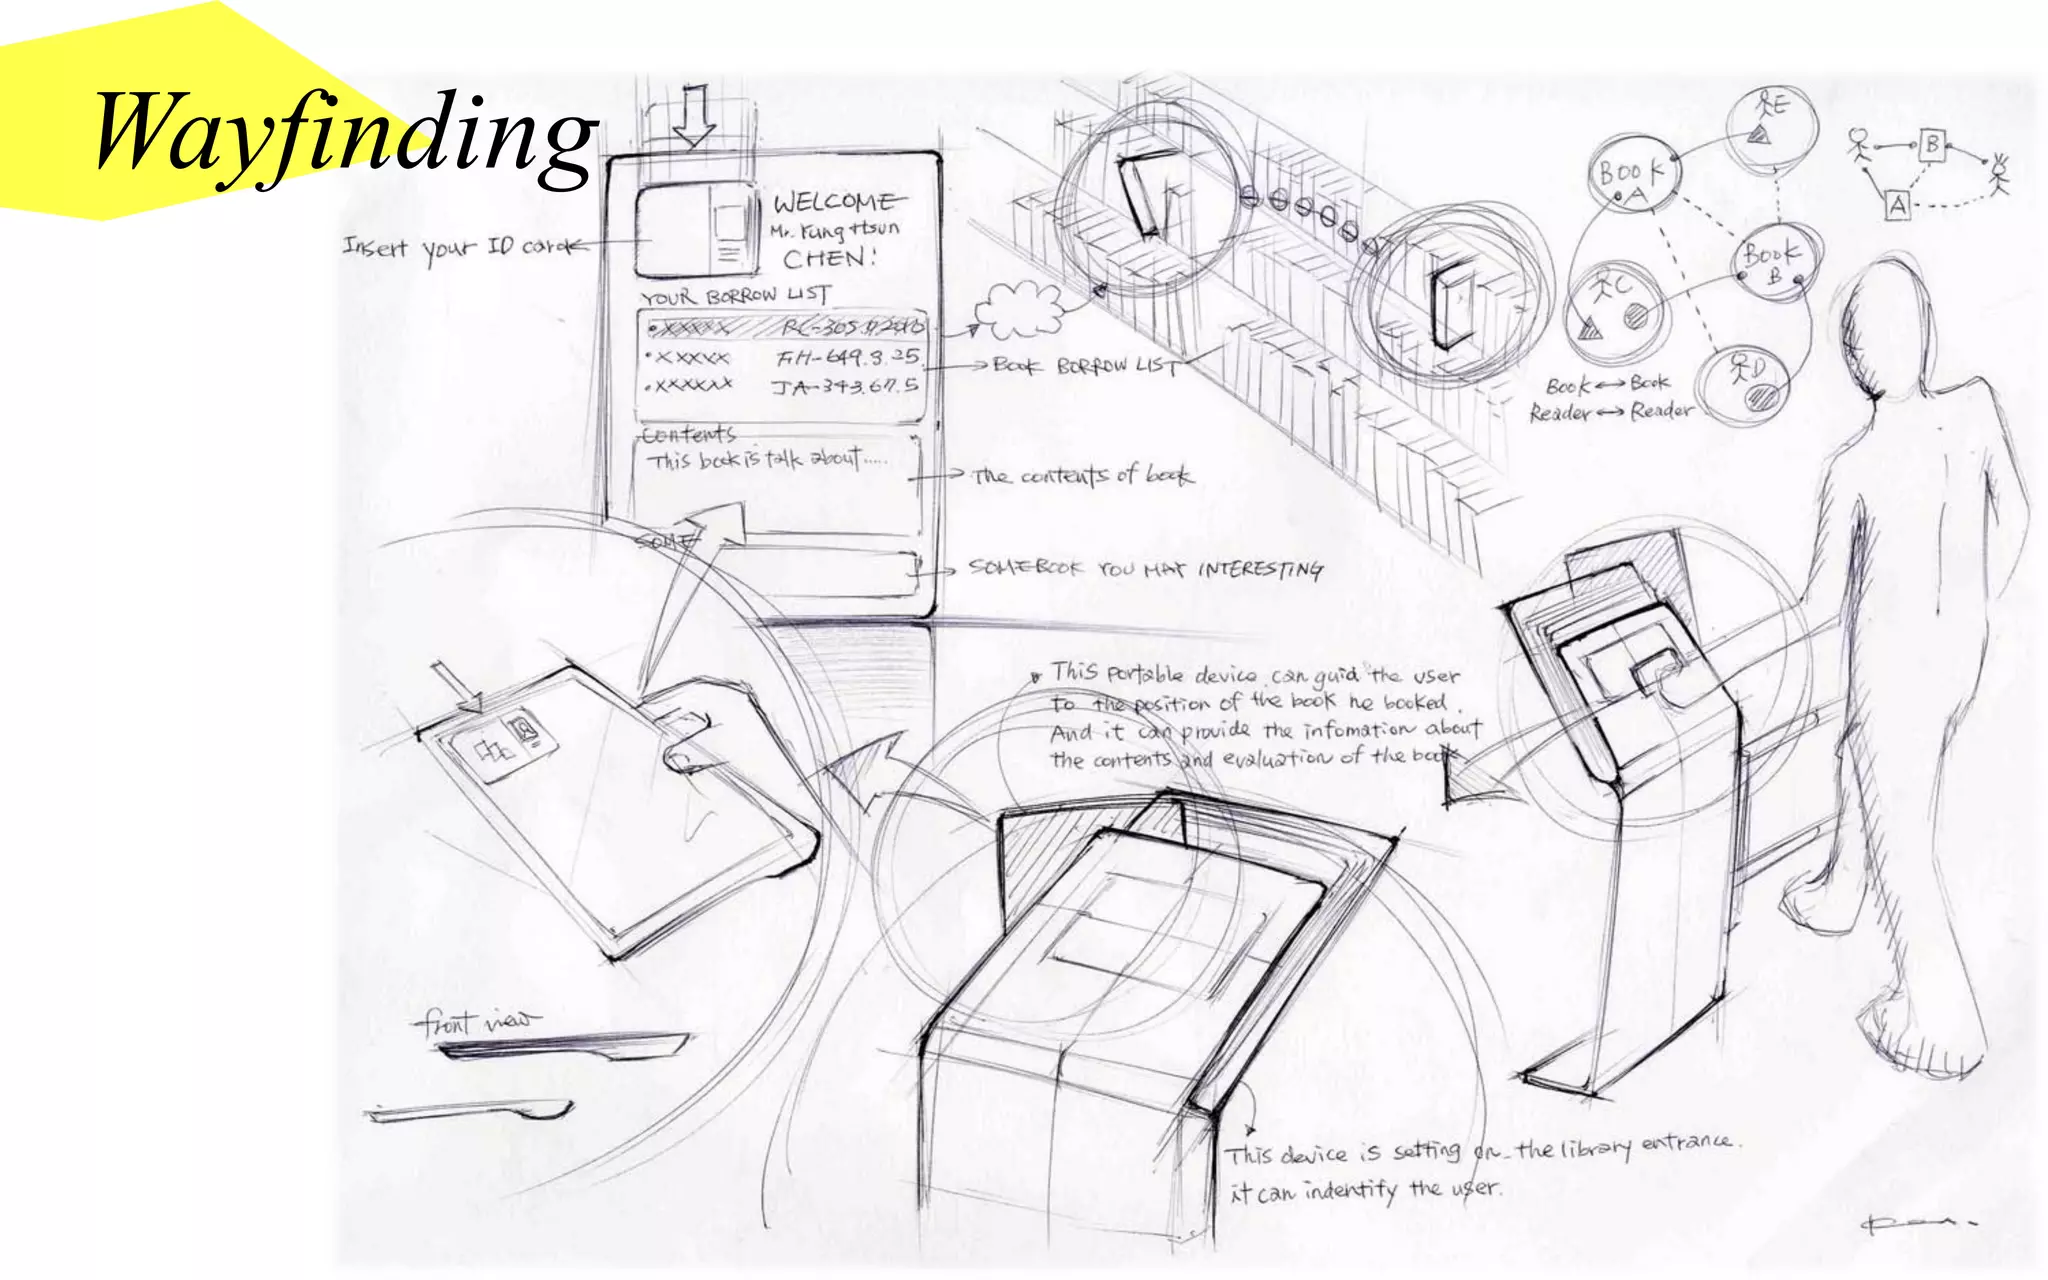 Wayfinding
Insert your ID card
WELCOME
Mr. Yung Hsun
CHEN!
YOUR BORROW LIST
•XXXXX
•XXXXX FH-649.3.25
•XXXXXX JA-343.67.5
Contents
This book is talk about.....
SOME
BOOK BORROW LIST
The contents of book
SOMEBOOK YOU MAY INTERESTING
BOOK
A
E
BOOK
B
C
D
Book ↔ Book
Reader ↔ Reader
B
A
This portable device can guid the user
to the position of the book he booked.
And it can provide the infomation about
the contents and evaluation of the book
front view
This device is setting on the library entrance.
it can indentify the user.